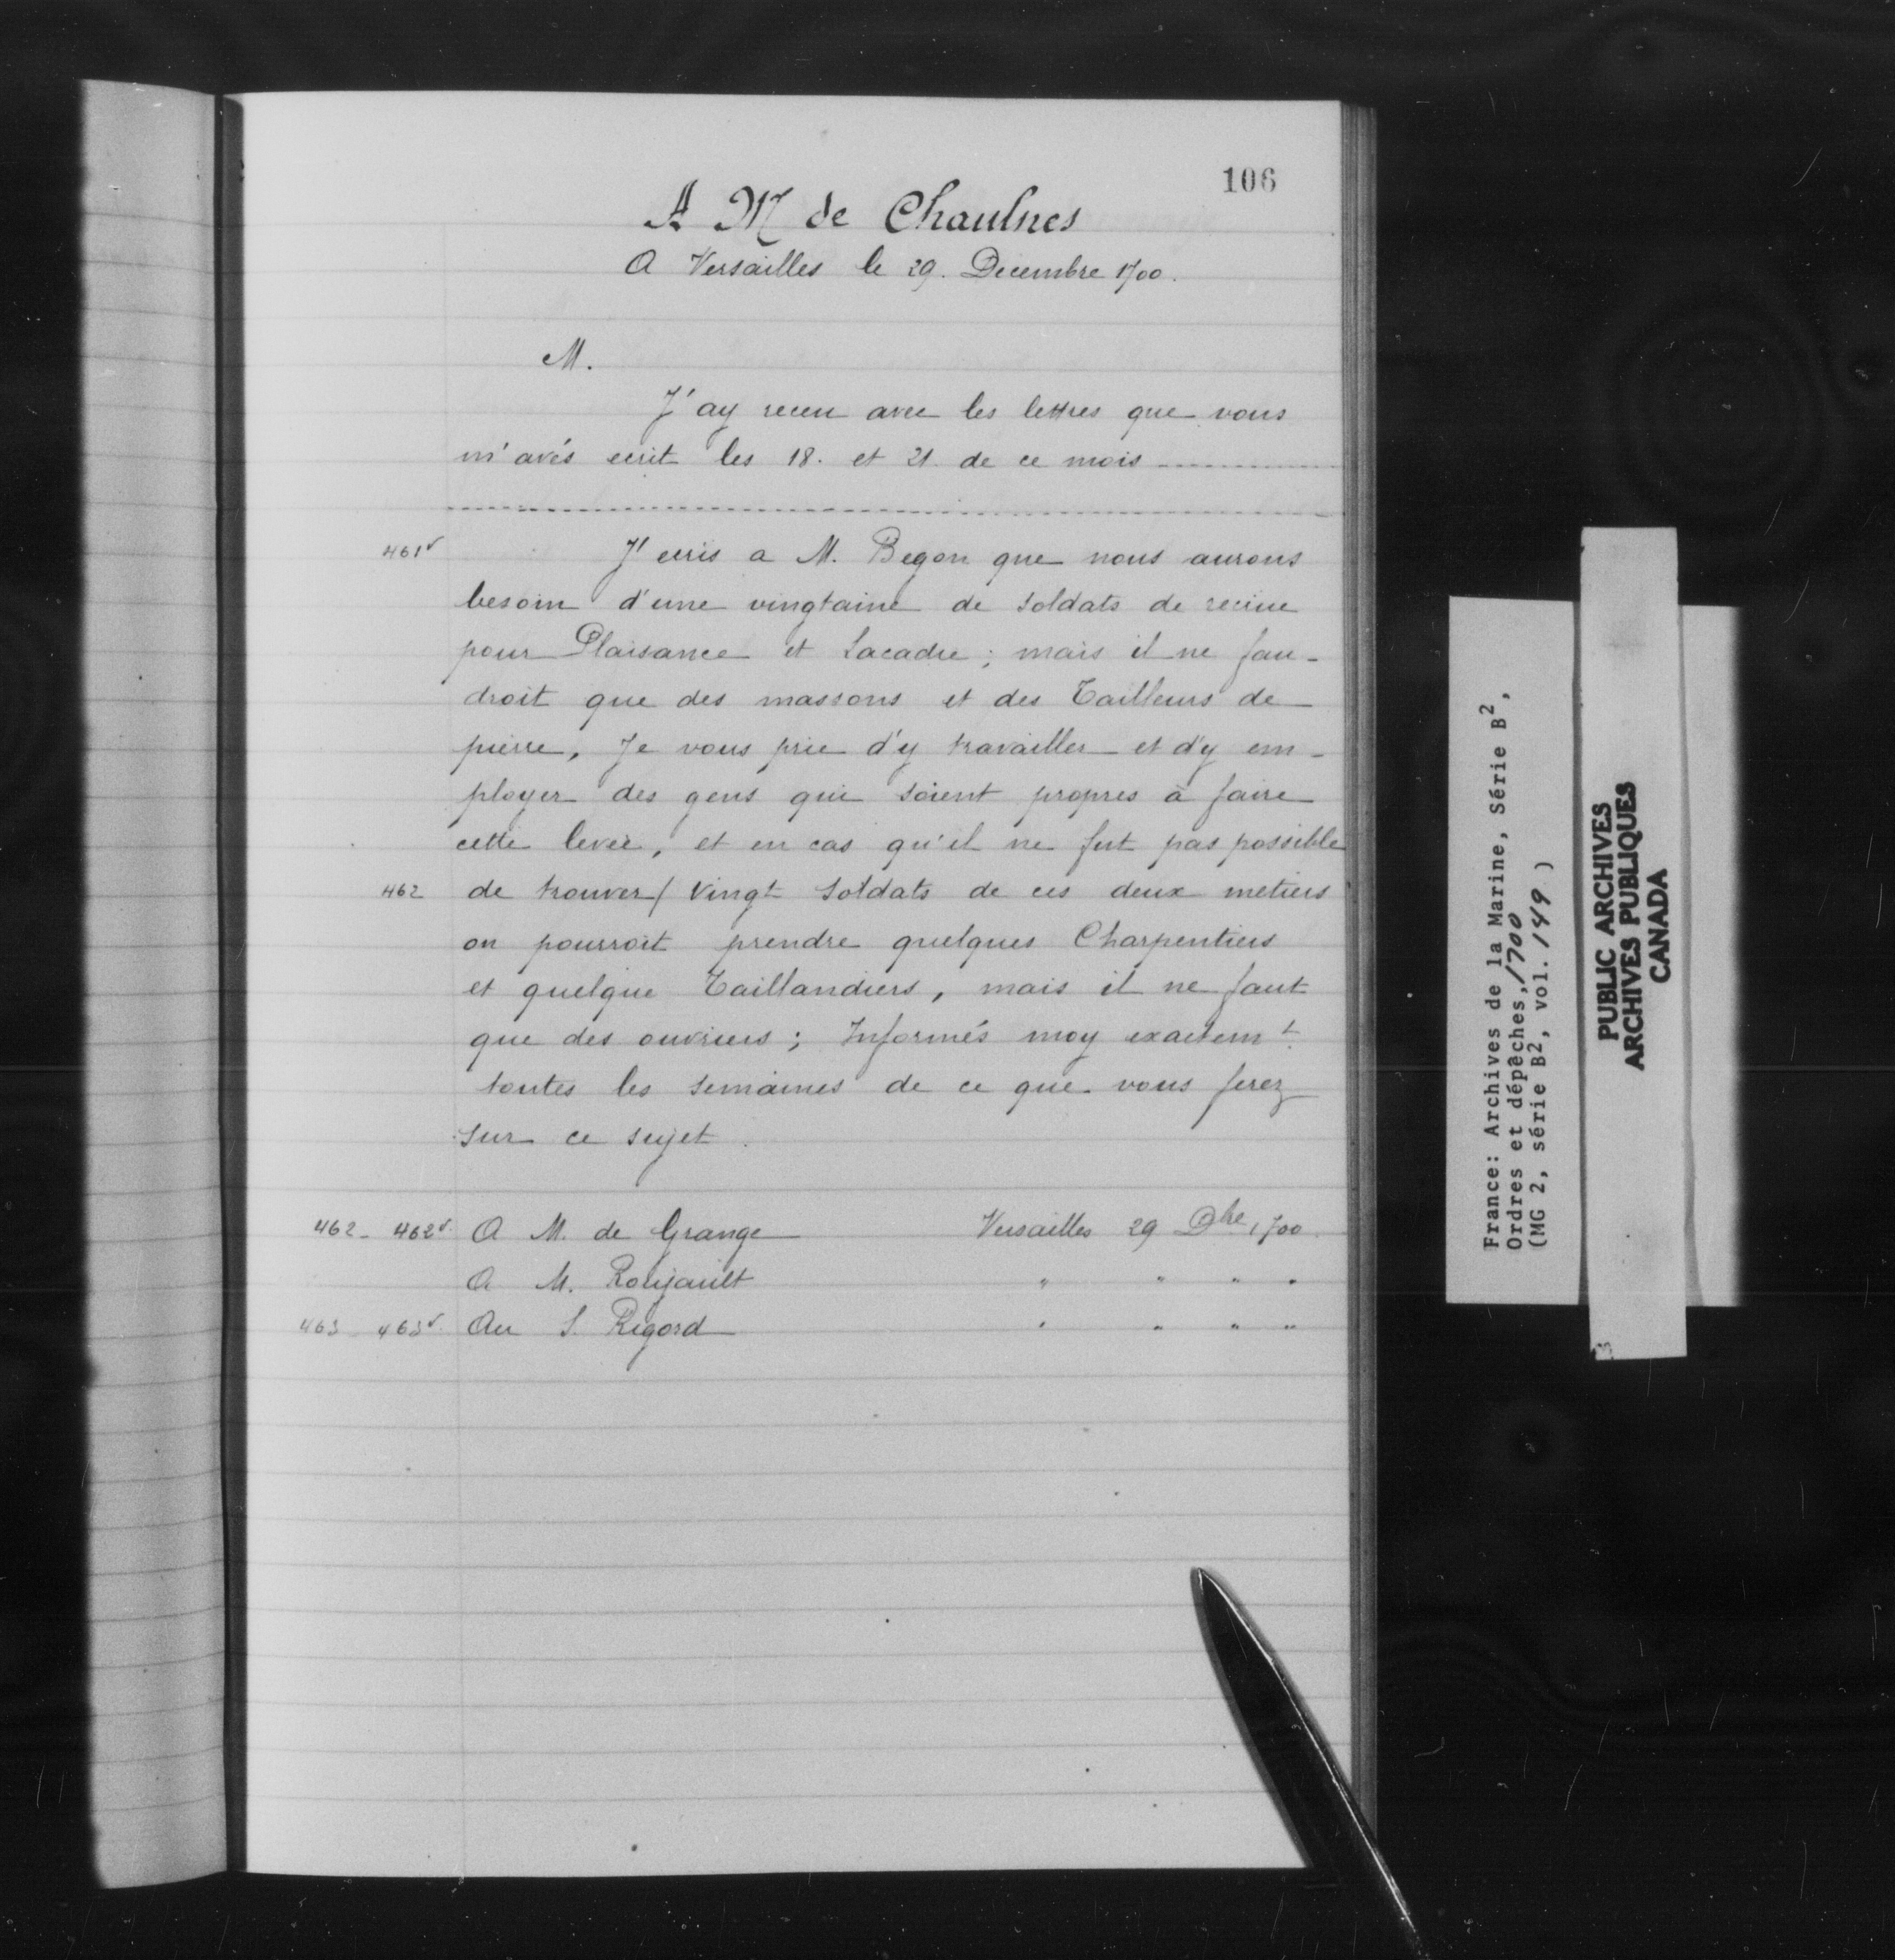 106
A M de Chaulnes
A Versailles le 29. Decembre 1700.
M.
J'ay receu avec les lettres que vous
m'avés ecrit les 18. et 21. de ce mois ............
............................................................
461v J'ecris a M. Begon que nous aurons
besoin d'une vingtaine de soldats de recrue
pour Plaisance et Lacadie ; mais il ne fau-
droit que des massons et des Tailleurs de
pierre, Je vous prie d'y travailler et d'y em-
ployer des gens qui soient propres à faire
cette levée, et en cas qu'il ne fut pas possible
462 de trouver / vingt soldats de ces deux metiers
on pourroit prendre quelques Charpentiers
et quelque Taillandiers, mais il ne faut
que des ouvriers ; Informés moy exactemt.
toutes les semaines de ce que vous ferez
sur ce sujet.
462 - 462v. A M. de Grange Versailles 29 Dbre 1700.
A M. Roujault " " " "
463 - 463v. Au S. Rigord " " " "
France: Archives de la Marine, Série B2,
Ordres et dépêches, 1700
(MG 2, série B2, vol. 149 )
PUBLIC ARCHIVES
ARCHIVES PUBLIQUES
CANADA
3